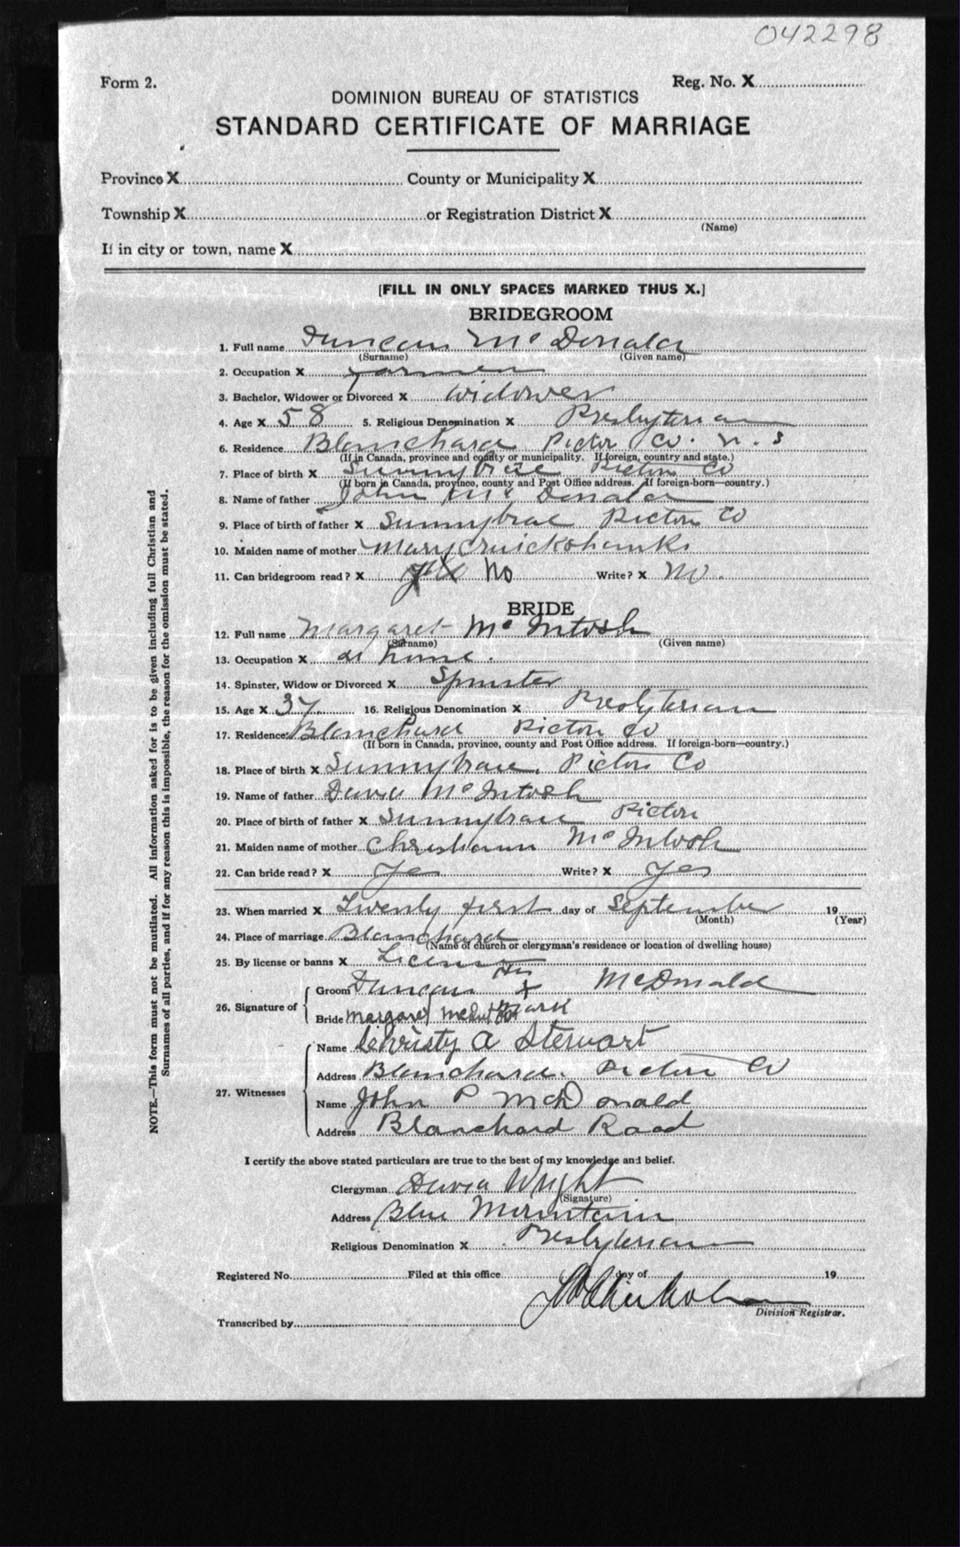 042298
Form 2.
Reg. No. X
DOMINION BUREAU OF STATISTICS
STANDARD CERTIFICATE OF MARRIAGE
Province X County or Municipality X
Township X or Registration District X
(Name)
If in city or town, name X
[FILL IN ONLY SPACES MARKED THUS X.]
BRIDEGROOM
1. Full name Duncan McDonald
(Surname) (Given name)
2. Occupation X farmer
3. Bachelor, Widower or Divorced X widower
4. Age X 58 5. Religious Denomination X Presbyterian
6. Residence Blanchard Pictou Co. N. S
(If in Canada, province and county or municipality. If foreign, country and state.)
7. Place of birth X Sunnybrae Pictou Co
(If born in Canada, province, county and Post Office address. If foreign-born—country.)
8. Name of father John Mc Donald
9. Place of birth of father X Sunnybrae Pictou Co
10. Maiden name of mother Mary Cruickshanks
11. Can bridegroom read? X No Write? X No.
BRIDE
12. Full name Margaret McIntosh
(Surname) (Given name)
13. Occupation X at home.
14. Spinster, Widow or Divorced X Spinster
15. Age X 37 16. Religious Denomination X Presbyterian
17. Residence: Blanchard Pictou Co
(If born in Canada, province, county and Post Office address. If foreign-born—country.)
18. Place of birth X Sunnybrae, Pictou Co
19. Name of father David McIntosh
20. Place of birth of father X Sunnybrae Pictou
21. Maiden name of mother Christiann McIntosh
22. Can bride read? X Yes Write? X Yes
23. When married X Twenty first day of September 19
(Month) (Year)
24. Place of marriage Blanchard
(Name of church or clergyman's residence or location of dwelling house)
25. By license or banns X License
his
26. Signature of Groom Duncan X McDonald
mark
Bride Margaret McIntosh
27. Witnesses
Name Christy A Stewart
Address Blanchard. Pictou Co
Name John P McDonald
Address Blanchard Road
I certify the above stated particulars are true to the best of my knowledge and belief.
Clergyman David Wright
(Signature)
Address Blue Mountain
Religious Denomination X Presbyterian
Registered No. Filed at this office day of 19
Division Registrar.
Transcribed by
NOTE.—This form must not be mutilated. All information asked for is to be given including full Christian and
Surnames of all parties, and if for any reason this is impossible, the reason for the omission must be stated.